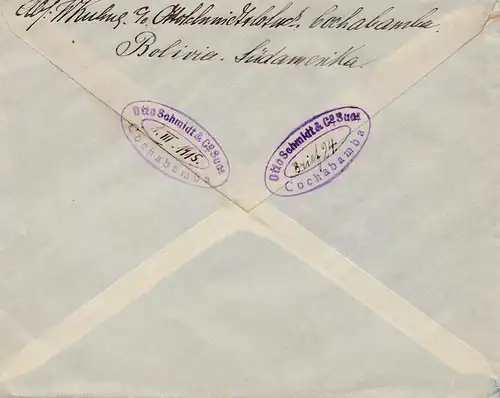 Abs. W. Kuhn c/o Otto Schmidt & Co Sucs. Cochabamba.
Bolivia. Südamerika.
Otto Schmidt & Co. Sucs
1. III. 1915.
Cochabamba
Otto Schmidt & Co. Sucs
Brief 24
Cochabamba